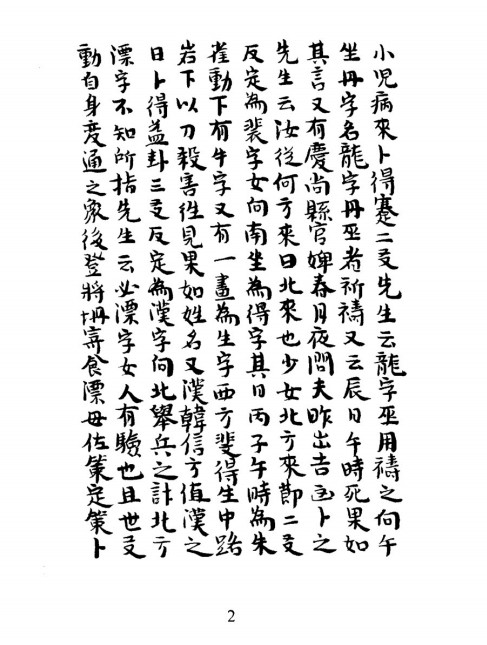 小児病來卜得蹇二爻先生云龍字巫用禱之向午
坐丹字名龍字丹巫者祈禱又云辰日午時死果如
其言又有慶尚縣官婢春月夜問夫昨出吉凶卜之
先生云汝從何方來曰北來也少女北方來節二爻
反定為裴字女向南坐為得字其日丙子午時為朱
雀動下有牛字又有一畫為生字西方斐得生中路
岩下以刀殺害徃見果如姓名又漢韓信方値漢之
日卜得益卦三爻反定為漢字向北擧兵之計北方
漂字不知所指先生云必漂字女人有驗也且世爻
動自身度通之象後登將坍寄食漂母佐策定策卜
2